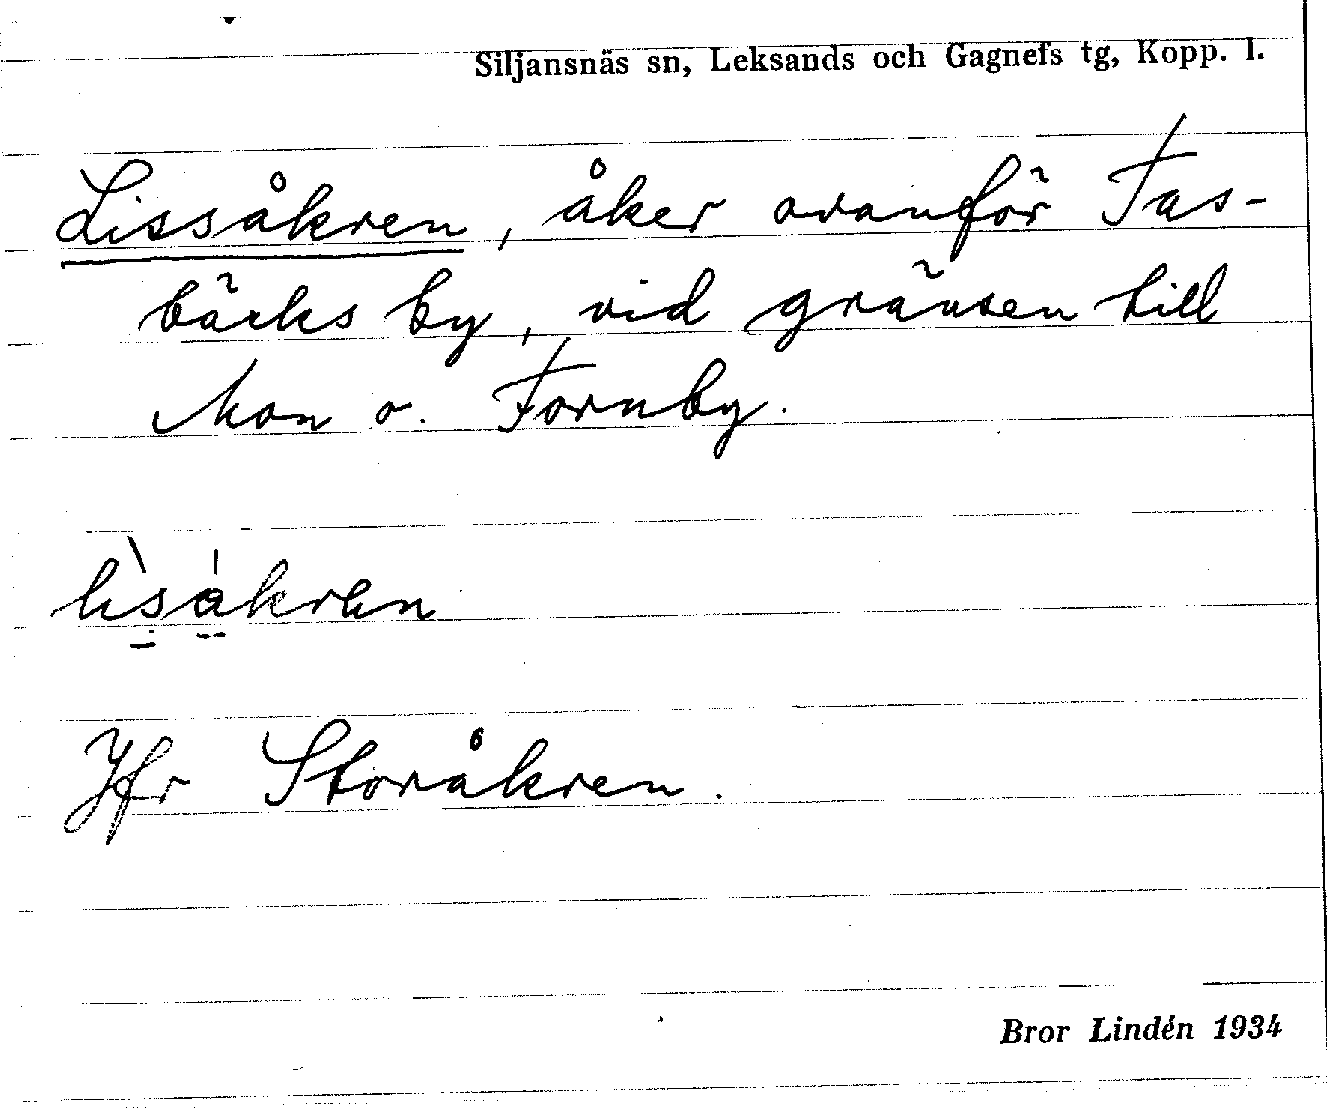 Siljansnäs sn, Leksands och Gagnefs tg, Kopp. l.
Lissåkren, åker ovanför Fas-
bäcks by, vid gränsen till
Mon o. Fornby.
Jfr Storåkren.
Bror Lindén 1934